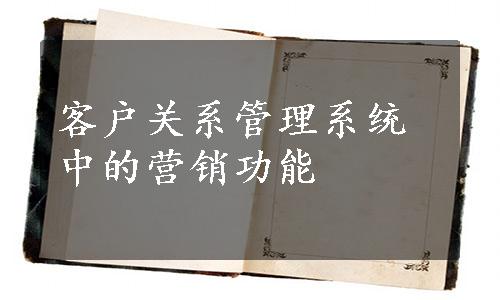 客户关系管理系统
中的营销功能